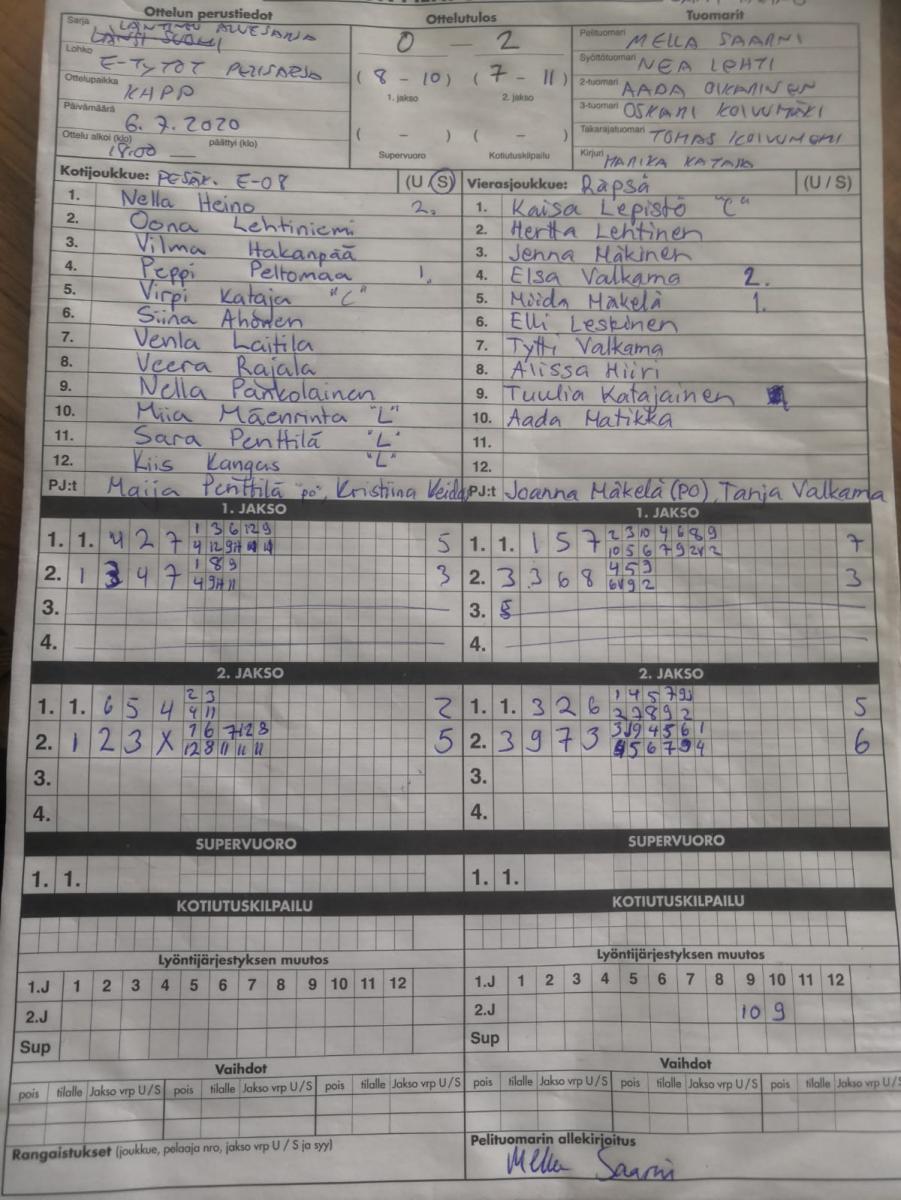 Ottelun perustiedot
Ottelutulos
Tuomarit
Sarja LÄNTINEN ALUESARJA
LÄNSI SUOMI
Lohko E-TYTÖT PERUSSARJA
Ottelupaikka KAPP
Päivämäärä 6.7.2020
Ottelu alkoi (klo) 18.00 päättyi (klo)
0 – 2
(8 - 10) (7 - 11)
1. jakso 2. jakso
( - ) ( - )
Supervuoro Kotiutuskilpailu
Pelituomari MELLA SAARNI
Syöttötuomari NEA LEHTI
2-tuomari AADA OKARINEN
3-tuomari OSKARI KOIVUMÄKI
Takarajatuomari TOMAS KOIVUMÄKI
Kirjuri MARIKA KATAJA
Kotijoukkue: PESÄK. E-08 (U / S)
1. Nella Heino 2.
2. Oona Lehtiniemi
3. Vilma Hakanpää
4. Peppi Peltomaa 1.
5. Virpi Kataja "C"
6. Siina Ahonen
7. Venla Laitila
8. Veera Rajala
9. Nella Pänkolainen
10. Miia Mäenrinta "L"
11. Sara Penttilä "L"
12. Kiis Kangas "L"
PJ:t Maija Penttilä "po", Kristiina
Vierasjoukkue: Räpsä (U / S)
1. Kaisa Lepistö "C"
2. Hertta Lehtinen
3. Jenna Mäkinen
4. Elsa Valkama 2.
5. Moida Mäkelä 1.
6. Elli Leskinen
7. Tytti Valkama
8. Alissa Hiiri
9. Tuulia Katajainen
10. Aada Matikka
11.
12.
PJ:t Joanna Mäkelä (PO), Tanja Valkama
1. JAKSO
1. 1. 4 2 7 1 3 6 12 9 5
2. 1 3 4 7 1 8 9 3
4 9 11 11
3.
4.
1. JAKSO
1. 1. 1 5 7 2 3 10 4 6 8 9 7
2. 3 3 6 8 4 5 9 3
3.
4.
2. JAKSO
1. 1. 6 5 4 2 3 2
4 11
2. 1 2 3 X 5
12 8 11 11 11
3.
4.
2. JAKSO
1. 1. 3 2 6 5
2. 3 9 7 3 6
3.
4.
SUPERVUORO
1. 1.
SUPERVUORO
1. 1.
KOTIUTUSKILPAILU
KOTIUTUSKILPAILU
Lyöntijärjestyksen muutos
1.J 1 2 3 4 5 6 7 8 9 10 11 12
2.J
Sup
Lyöntijärjestyksen muutos
1.J 1 2 3 4 5 6 7 8 9 10 11 12
2.J 10 9
Sup
Vaihdot
pois tilalle Jakso vrp U/S pois tilalle Jakso vrp U/S pois tilalle Jakso vrp U/S
Vaihdot
pois tilalle Jakso vrp U/S pois tilalle Jakso vrp U/S pois tilalle Jakso vrp U/S
Rangaistukset (joukkue, pelaaja nro, jakso vrp U / S ja syy)
Pelituomarin allekirjoitus
Mella Saarni